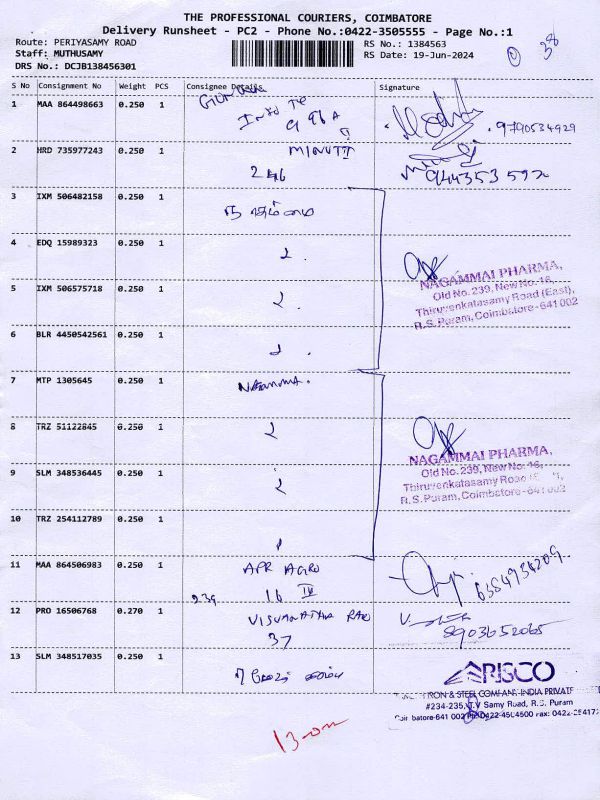 THE PROFESSIONAL COURIERS, COIMBATORE
Delivery Runsheet - PC2 - Phone No.:0422-3505555 - Page No.:1
Route: PERIYASAMY ROAD
Staff: MUTHUSAMY
DRS No.: DCJB138456301
RS No.: 1384563
RS Date: 19-Jun-2024
38
S No Consignment No Weight PCS Consignee Details Signature
1 MAA 864498663 0.250 1
9790534929
MINUTT
2 HRD 735977243 0.250 1 246
3 IXM 506482158 0.250 1
4 EDQ 15989323 0.250 1 2.
NAGAMMAI PHARMA,
Old No. 239, New No.-16,
Thiruvenkatasamy Road (East),
R.S. Puram, Coimbatore-641 002
5 IXM 506575718 0.250 1 2.
6 BLR 4450542561 0.250 1
7 MTP 1305645 0.250 1
8 TRZ 51122845 0.250 1 2
NAGAMMAI PHARMA,
Old No. 239, New No.-16,
Thiruvenkatasamy Road
R.S. Puram, Coimbatore-641 002
9 SLM 348536445 0.250 1 2
10 TRZ 254112789 0.250 1
11 MAA 864506983 0.250 1 APR AGRO
239 16 IV
6384934209
12 PRO 16506768 0.270 1 VISVANATHA RAO
37
8903652065
13 SLM 348517035 0.250 1
ARISCO
IRON & STEEL COMPANY INDIA PRIVATE
#234-235, T.V Samy Road, R.S. Puram
Coimbatore-641 002 PH:0422-4504500 Fax: 0422-25417
13-on